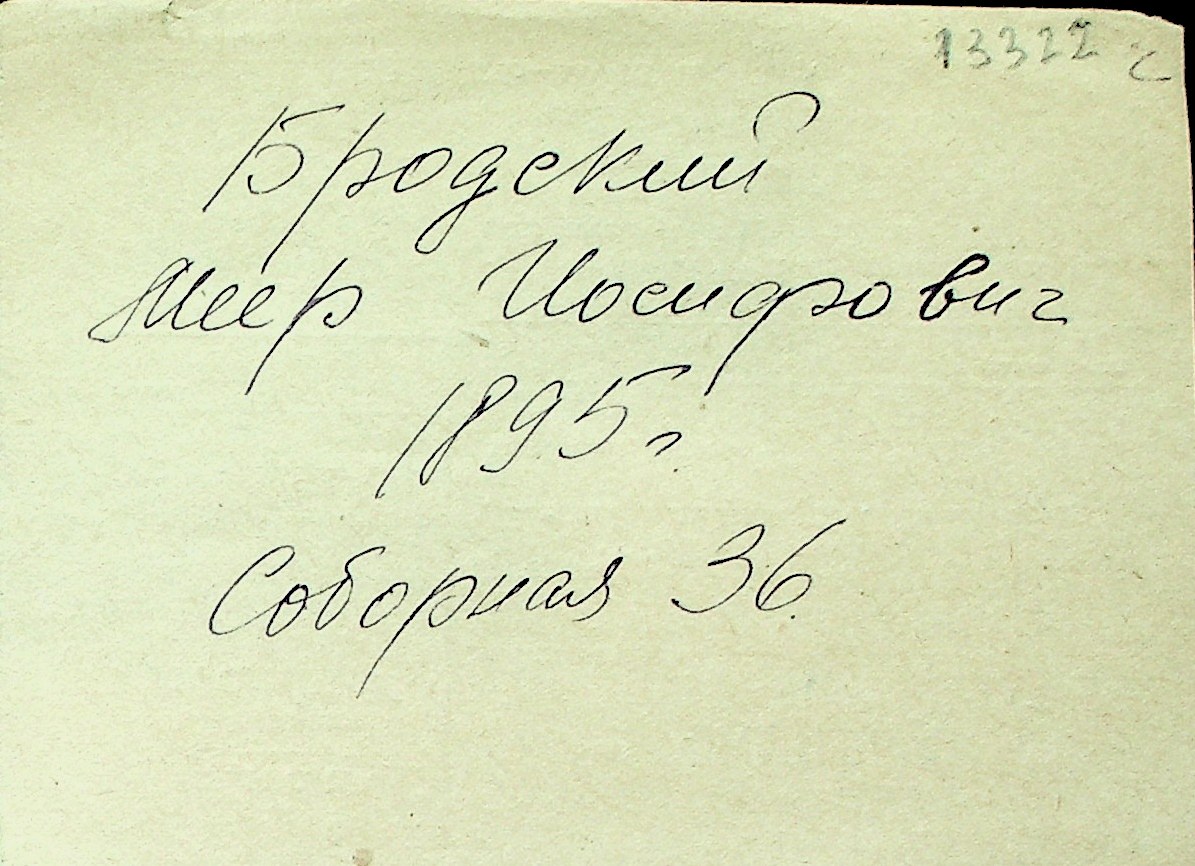 13322 г
Бродский
Меер Иосифович
1895 г.
Соборная 36.